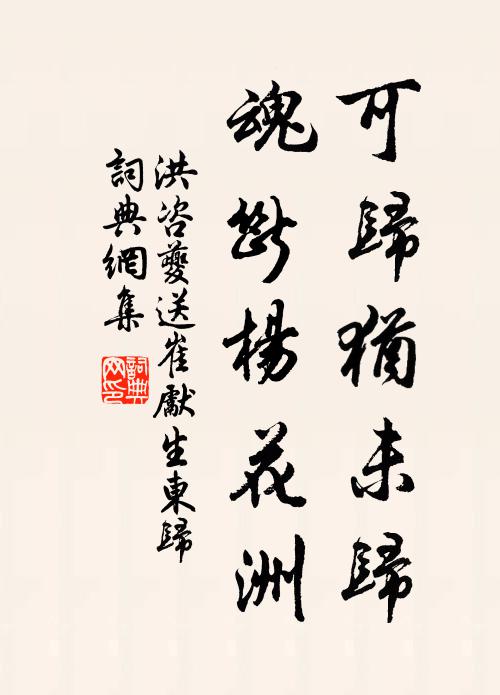 可歸猶未歸
魂斷楊花洲
洪咨夔送崔獻生東歸
詞典網集
詞典網印